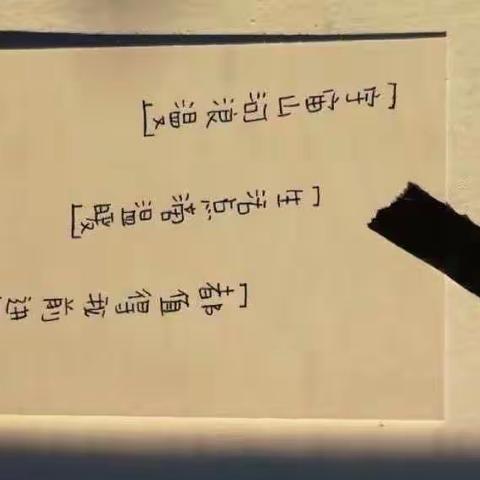 [宇宙山河浪漫]
[生活点滴温暖]
[都值得我前进